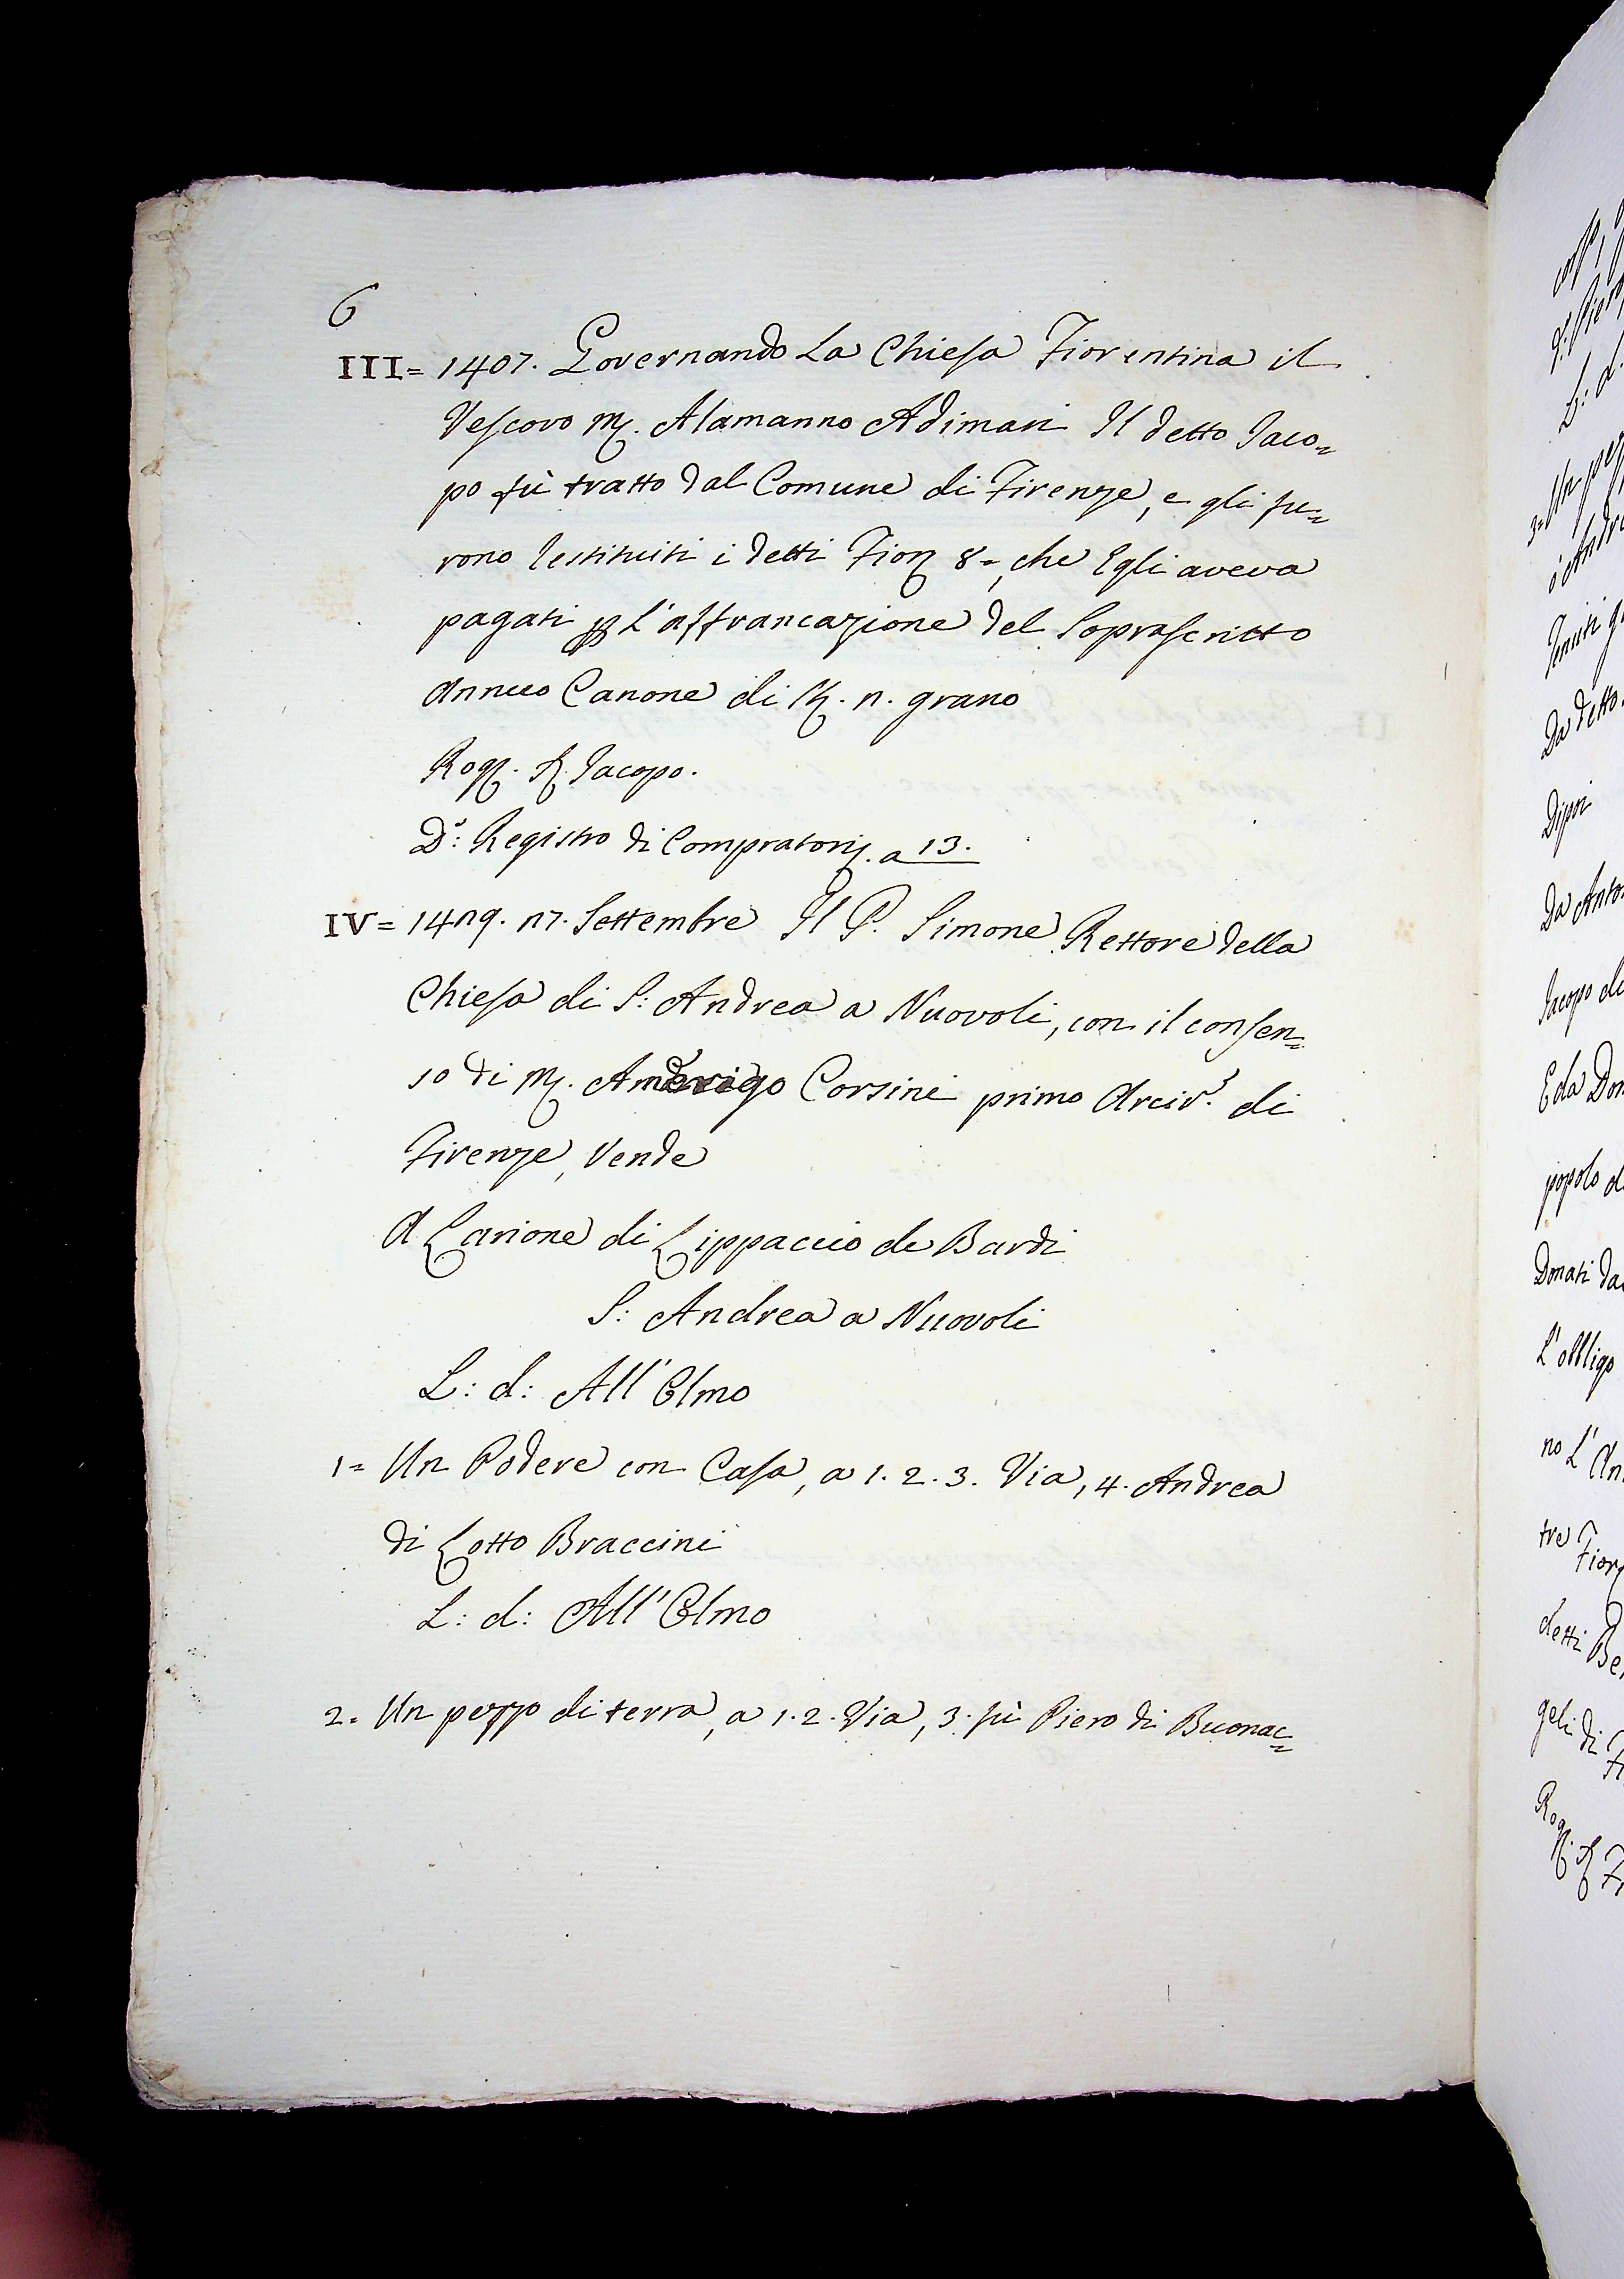 6
III = 1407. Governando La Chiesa Fiorentina il
Vescovo M. Alamanno Adimari Il detto Jaco=
po fù tratto dal Comune di Firenze, e gli fu=
rono restituiti i detti Fior. 8 =, che Egli aveva
pagati p L'affrancazione del Soprascritto
Annuo Canone di St. n. grano
Rog. S. Jacopo.
D.º: Registro di Compratori. a 13.
IV = 14n9. n7. Settembre Il P. Simone Rettore della
Chiesa di S: Andrea a Nuovoli, con il consen=
so di M. Amerigo Corsini primo Arciv.º di
Firenze, Vende
A Larione di Lippaccio de Bardi
S: Andrea a Nuovoli
L: d: All' Olmo
1 = Un Podere con Casa, a 1. 2. 3. Via, 4. Andrea
di Lotto Braccini
L: d: All' Olmo
2. Un pezzo di terra, a 1. 2. Via, 3. fù Piero di Buonac=
3 = Un
Tenuti
Da detto
Dipoi
Da Anto
Jacopo di
E da Don
popolo d
Donati da
L'obligo
no L' An
tre Fior
detti Be
geli di
Rog. S. F